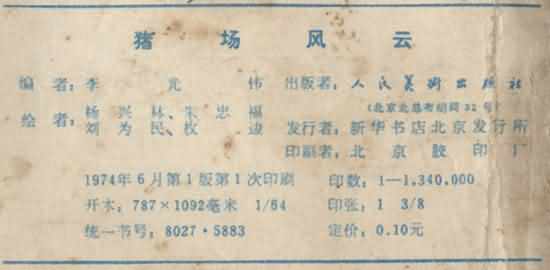 猪场风云
编者：李光伟
出版者：人民美术出版社
（北京北总布胡同32号）
绘者：杨兴林、朱忠福
刘为民、权迎
发行者：新华书店北京发行所
印刷者：北京胶印厂
1974年6月第1版第1次印刷
印数：1—1,340,000
开本：787×1092毫米 1/64
印张：1 3/8
统一书号：8027·5883
定价：0.10元